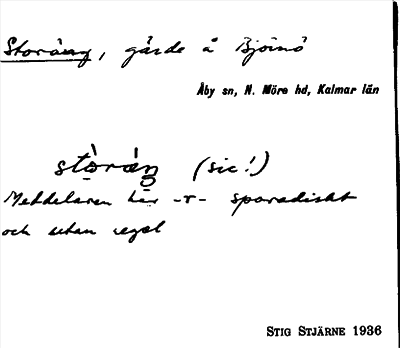 Storäng, gärde å Björnö
Åby sn, N. Möre hd, Kalmar län
stòràŋ (sic!)
Meddelaren har -r- sporadiskt
och utan regel
STIG STJÄRNE 1936